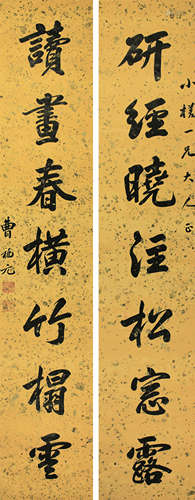 小樓一兄大人正
研經曉注松窗露
讀畫春橫竹榻雲
曹福元